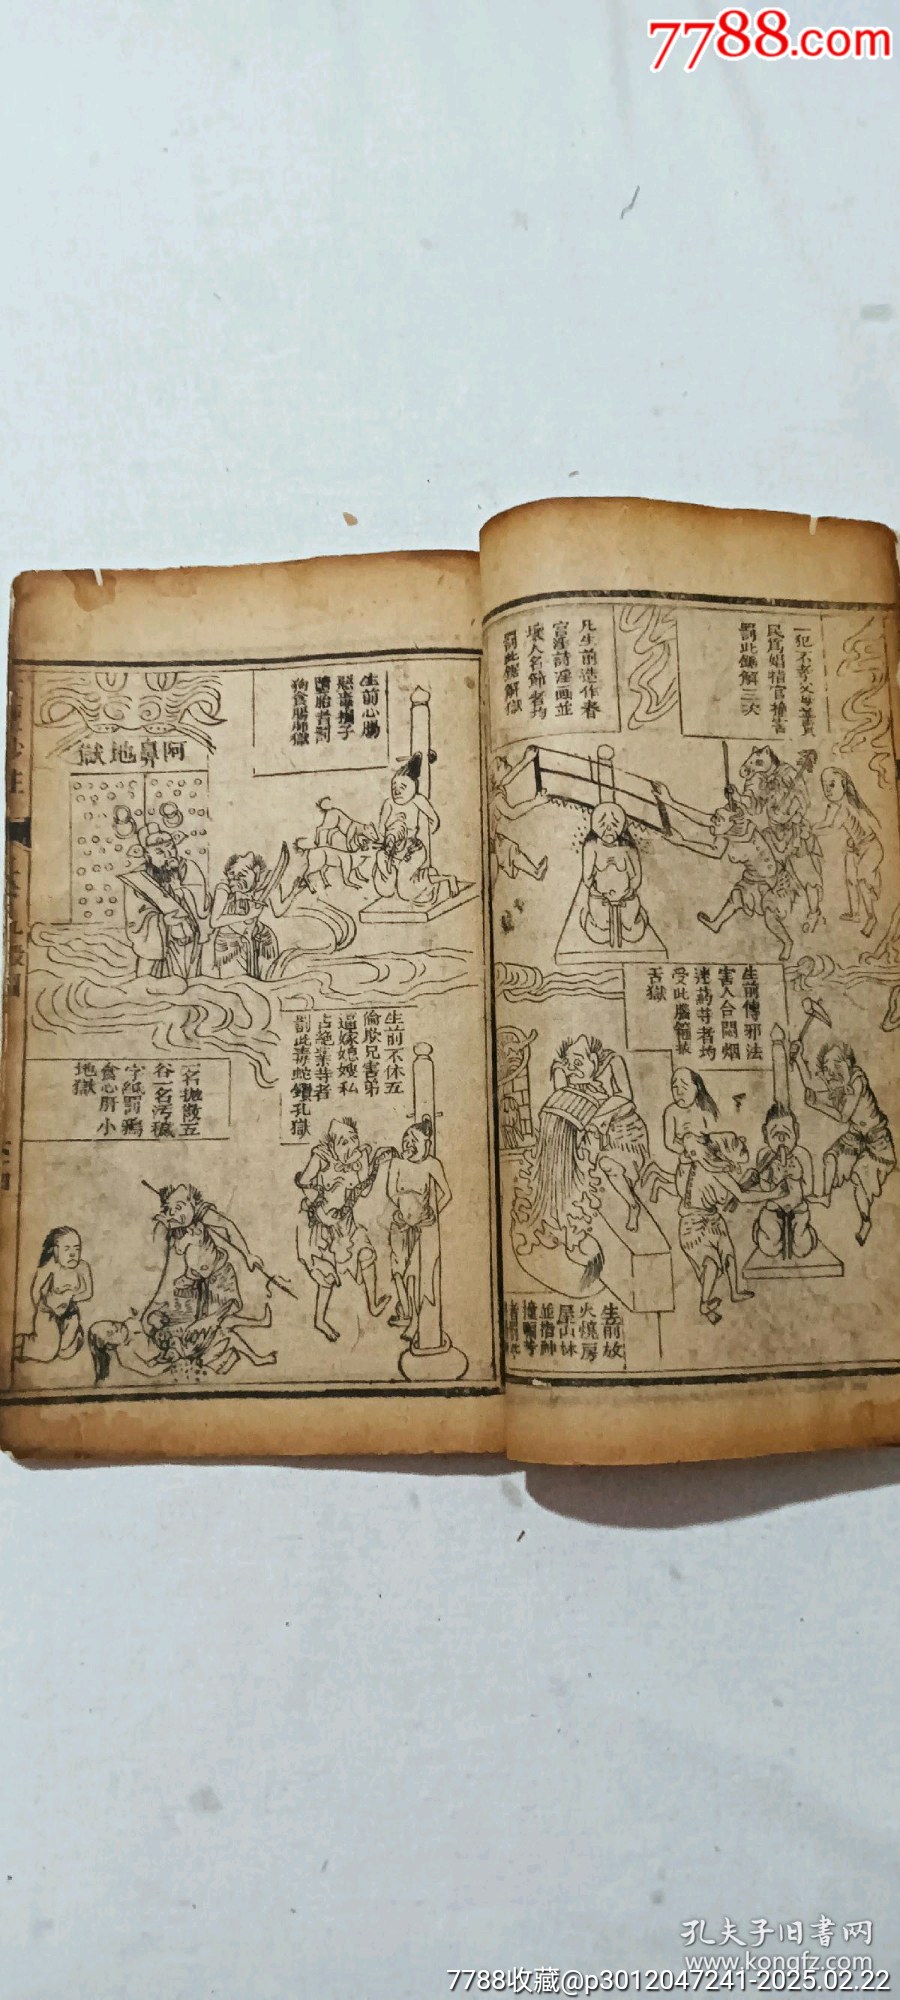 7788.com
一犯不孝父母並賣
民爲娼指官撞害
罰此鋸解三次
凡生前造作者
宮淫詩淫画並
壞人名節者均
罰此鋸解獄
生前傳邪法
害人台悶烟
迷葯等者均
受此腦箍拔
舌獄
生前放
火燒房
屋山林
並指神
生前心腸
惡毒損子
墮胎者罰
狗食腸肺獄
阿鼻地獄
生前不休五
倫欺兄害弟
逼嫁媳嫂私
占絕業等者
罰此毒蛇鑽孔獄
一名拋散五
谷一名污穢
字紙罰鴉
食心肝小
地獄
孔夫子旧書网
www.kongfz.com
7788收藏@p3012047241-2025.02.22